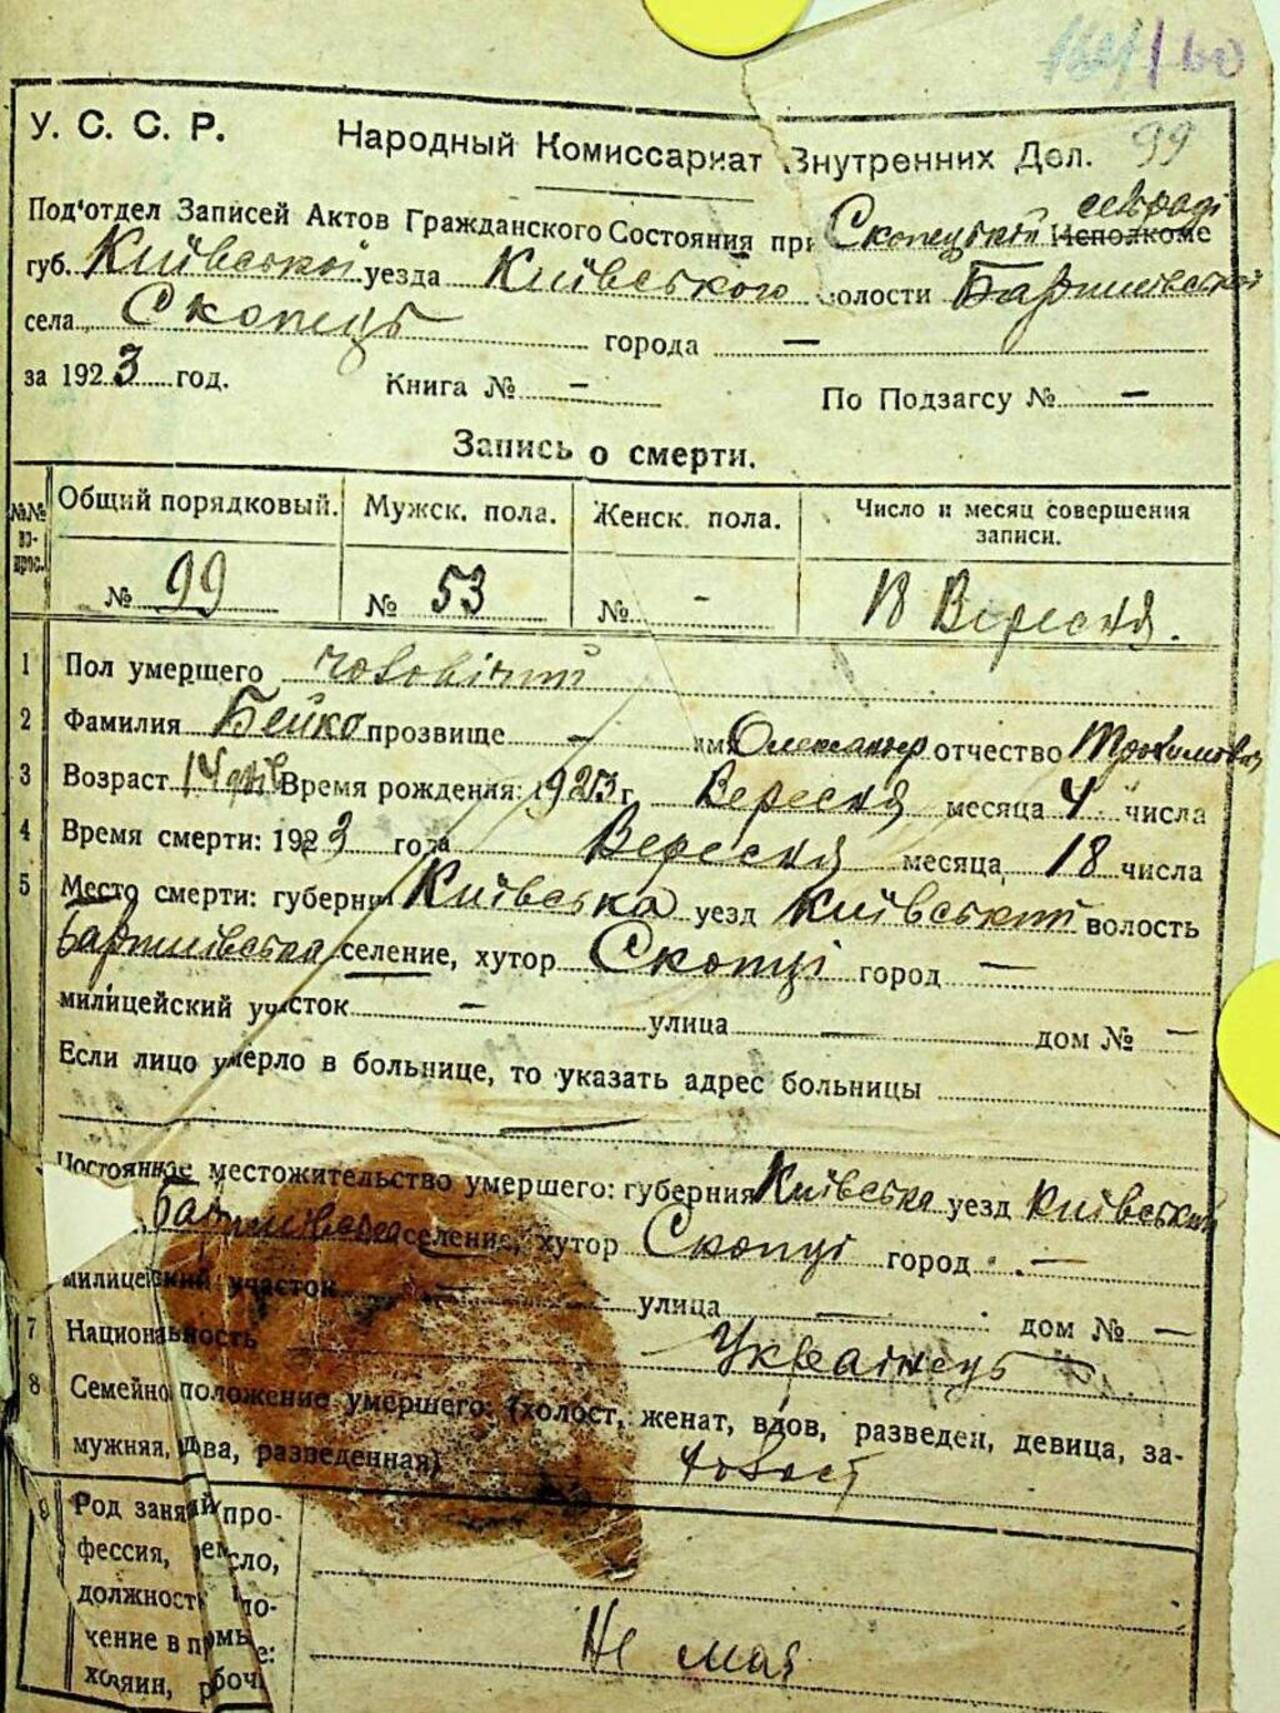 99
У. С. С. Р. Народный Комиссариат Внутренних Дел.
Под'отдел Записей Актов Гражданского Состояния при Скопецкій сельраді Исполкоме
губ. Київської уезда Київського волости Баришівської
села Скопець города —
за 1923 год. Книга № - По Подзагсу № -
Запись о смерти.
№№ во-прос. Общий порядковый. Мужск. пола. Женск. пола. Число и месяц совершения записи.
№ 99 № 53 № - 18 Вересня.
1 Пол умершего чоловічий
2 Фамилия Бейко прозвище - имя Олександр отчество Трохимович
3 Возраст 14 днів Время рождения: 1923 г. Вересня месяца 4 числа
4 Время смерти: 1923 года Вересня месяца 18 числа
5 Место смерти: губерния Київська уезд Київський волость
Баришівська селение, хутор Скопці город —
милицейский участок - улица — дом № -
Если лицо умерло в больнице, то указать адрес больницы
—
Постоянное местожительство умершего: губерния Київська уезд Київський
Баришівська селение, хутор Скопці город —
милицейский участок — улица — дом № —
7 Национальность Українець
8 Семейно положение умершего: (холост, женат, вдов, разведен, девица, за-
мужняя, вдова, разведенная) холост
9 Род занятий про-
фессия, ремесло,
должность по-
жение в промы е:
хозяин, рабоч Не мая